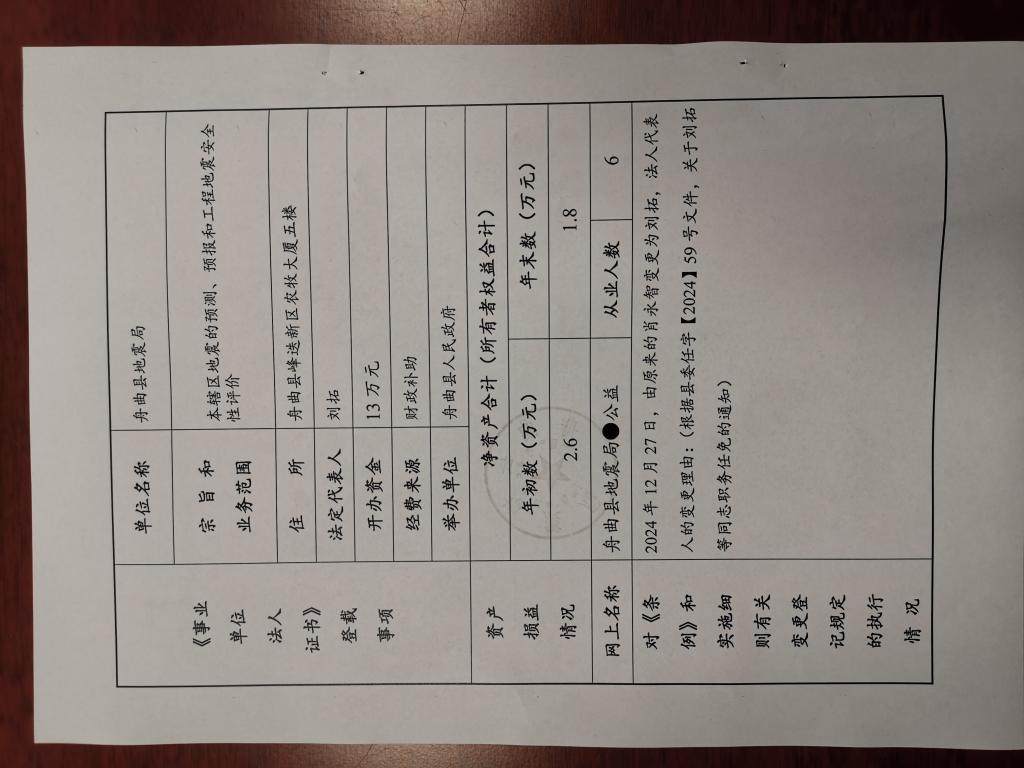 《事业
单位
法人
证书》
登载
事项
单位名称
舟曲县地震局
宗旨和
业务范围
本辖区地震的预测、预报和工程地震安全
性评价
住所
舟曲县峰迭新区农牧大厦五楼
法定代表人
刘拓
开办资金
13 万元
经费来源
财政补助
举办单位
舟曲县人民政府
资产
损益
情况
净资产合计（所有者权益合计）
年初数（万元）
年末数（万元）
2.6
1.8
网上名称
舟曲县地震局●公益
从业人数
6
对《条
例》和
实施细
则有关
变更登
记规定
的执行
情况
2024 年 12 月 27 日，由原来的肖永智变更为刘拓，法人代表
人的变更理由：（根据县委任字【2024】59 号文件，关于刘拓
等同志职务任免的通知）